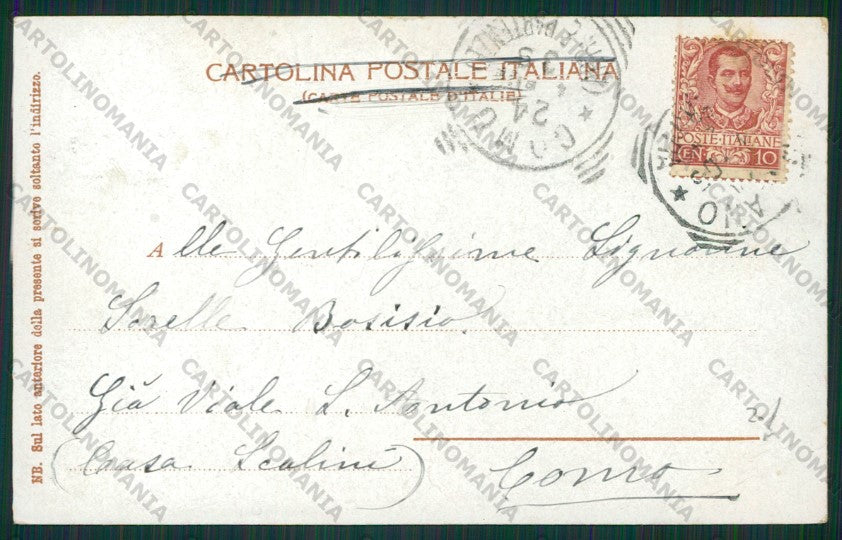 CARTOLINA POSTALE ITALIANA
(CARTE POSTALE D'ITALIE)
POSTE ITALIANE
CEN. 10
COMO
24
Alle Gentilissime Signorine
Sorelle Bosisio
Già Viale S. Antonio
(Casa Scalini)
Como
NB. Sul lato anteriore della presente si scrive soltanto l'indirizzo.
CARTOLINOMANIA